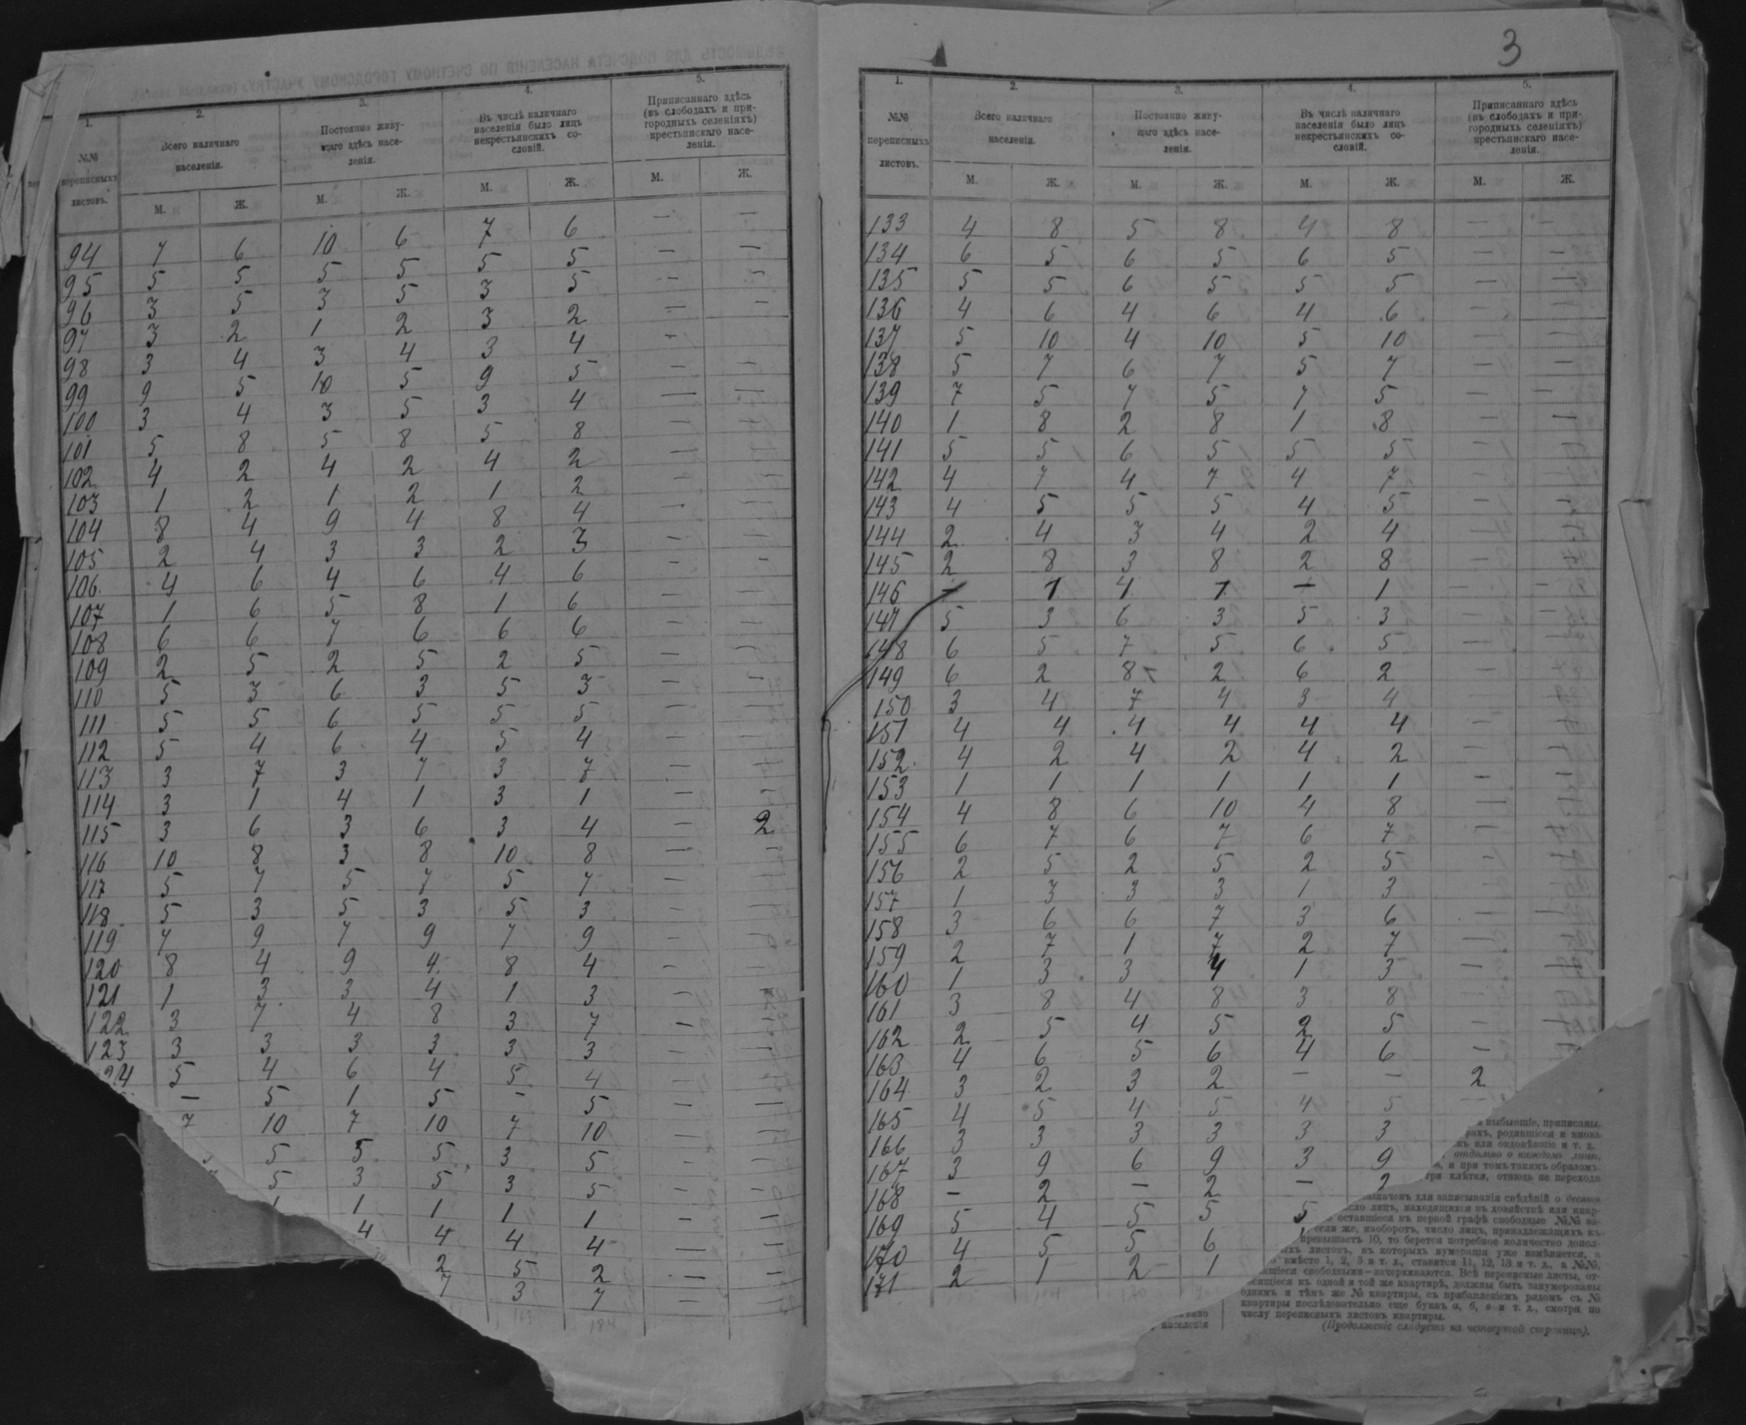 3
1. 2. 3. 4. 5.
№№ переписныхъ листовъ.
Всего наличнаго населенія.
Постоянно живущаго здѣсь населенія.
Въ числѣ наличнаго населенія было лицъ некрестьянскихъ сословій.
Приписаннаго здѣсь (въ слободахъ и пригородныхъ селеніяхъ) крестьянскаго населенія.
М. Ж. М. Ж. М. Ж. М. Ж.
94 7 6 10 6 7 6 — —
95 5 5 5 5 5 5 — —
96 3 5 3 5 3 5 — —
97 3 2 1 2 3 2 — —
98 3 4 3 4 3 4 —
99 9 5 10 5 9 5 — —
100 3 4 3 5 3 4 — —
101 5 8 5 8 5 8 — —
102 4 2 4 2 4 2 — —
103 1 2 1 2 1 2 — —
104 8 4 9 4 8 4 — —
105 2 4 3 3 2 3 — —
106 4 6 4 6 4 6 — —
107 1 6 5 8 1 6 — —
108 6 6 7 6 6 6 — —
109 2 5 2 5 2 5 — —
110 5 3 6 3 5 3 — —
111 5 5 6 5 5 5 — —
112 5 4 6 4 5 4 — —
113 3 7 3 7 3 7 — —
114 3 1 4 1 3 1 — —
115 3 6 3 6 3 4 — 2
116 10 8 3 8 10 8 — —
117 5 7 5 7 5 7 — —
118 5 3 5 3 5 3 — —
119 7 9 7 9 7 9 — —
120 8 4 9 4 8 4 — —
121 1 3 3 4 1 3 — —
122 3 7 4 8 3 7 — —
123 3 3 3 3 3 3 — —
24 5 4 6 4 5 4 — —
— 5 1 5 — 5 — —
7 10 7 10 7 10 — —
5 5 5 3 5 — —
5 3 5 3 5 — —
1 1 1 1 1 — —
4 4 4 4 — —
2 5 2 — —
7 3 7 — —
1. 2. 3. 4. 5.
№№ переписныхъ листовъ.
Всего наличнаго населенія.
Постоянно живущаго здѣсь населенія.
Въ числѣ наличнаго населенія было лицъ некрестьянскихъ сословій.
Приписаннаго здѣсь (въ слободахъ и пригородныхъ селеніяхъ) крестьянскаго населенія.
М. Ж. М. Ж. М. Ж. М. Ж.
133 4 8 5 8 4 8 — —
134 6 5 6 5 6 5 — —
135 5 5 6 5 5 5 — —
136 4 6 4 6 4 6 — —
137 5 10 4 10 5 10 — —
138 5 7 6 7 5 7 — —
139 7 5 7 5 7 5 — —
140 1 8 2 8 1 8 — —
141 5 5 6 5 5 5 — —
142 4 7 4 7 4 7 — —
143 4 5 5 5 4 5 — —
144 2 4 3 4 2 4 — —
145 2 8 3 8 2 8 — —
146 — 1 4 1 — 1 — —
147 5 3 6 3 5 3 — —
148 6 5 7 5 6 5 — —
149 6 2 8 2 6 2 — —
150 3 4 7 4 3 4 — —
151 4 4 4 4 4 4 — —
152 4 2 4 2 4 2 — —
153 1 1 1 1 1 1 — —
154 4 8 6 10 4 8 — —
155 6 7 6 7 6 7 — —
156 2 5 2 5 2 5 — —
157 1 3 3 3 1 3 — —
158 3 6 6 7 3 6 — —
159 2 7 1 7 2 7 — —
160 1 3 3 4 1 3 — —
161 3 8 4 8 3 8 — —
162 2 5 4 5 2 5 — —
163 4 6 5 6 4 6 —
164 3 2 3 2 — — 2
165 4 5 4 5 4 5 —
166 3 3 3 3 3 3
167 3 9 6 9 3 9
168 — 2 — 2 — 2
169 5 4 5 5 5
170 4 5 5 6
171 2 1 2 1
выбывшіе, приписаны.
родившіеся и вновь
или овдовѣвшіе и т. д.
отдѣльно о каждомъ лицѣ,
и при томъ такимъ образомъ
три клѣтки, отнюдь не переходя
для записыванія свѣдѣній о десяти
лицъ, находящихся въ хозяйствѣ или квар-
оставшіеся въ первой графѣ свободные №№ за-
если же, наоборотъ, число лицъ, принадлежащихъ къ
превышаетъ 10, то берется потребное количество допол-
листовъ, въ которыхъ нумерація уже измѣняется, а
вмѣсто 1, 2, 3 и т. д., ставится 11, 12, 13 и т. д., а №№,
свободными—зачеркиваются. Всѣ переписные листы, от-
носящіеся къ одной и той же квартирѣ, должны быть занумерованы
однимъ и тѣмъ же № квартиры, съ прибавленіемъ рядомъ съ №
квартиры послѣдовательно еще буквъ а, б, в и т. д., смотря по
населенія числу переписныхъ листовъ квартиры.
(Продолженіе слѣдуетъ на четвертой страницѣ).